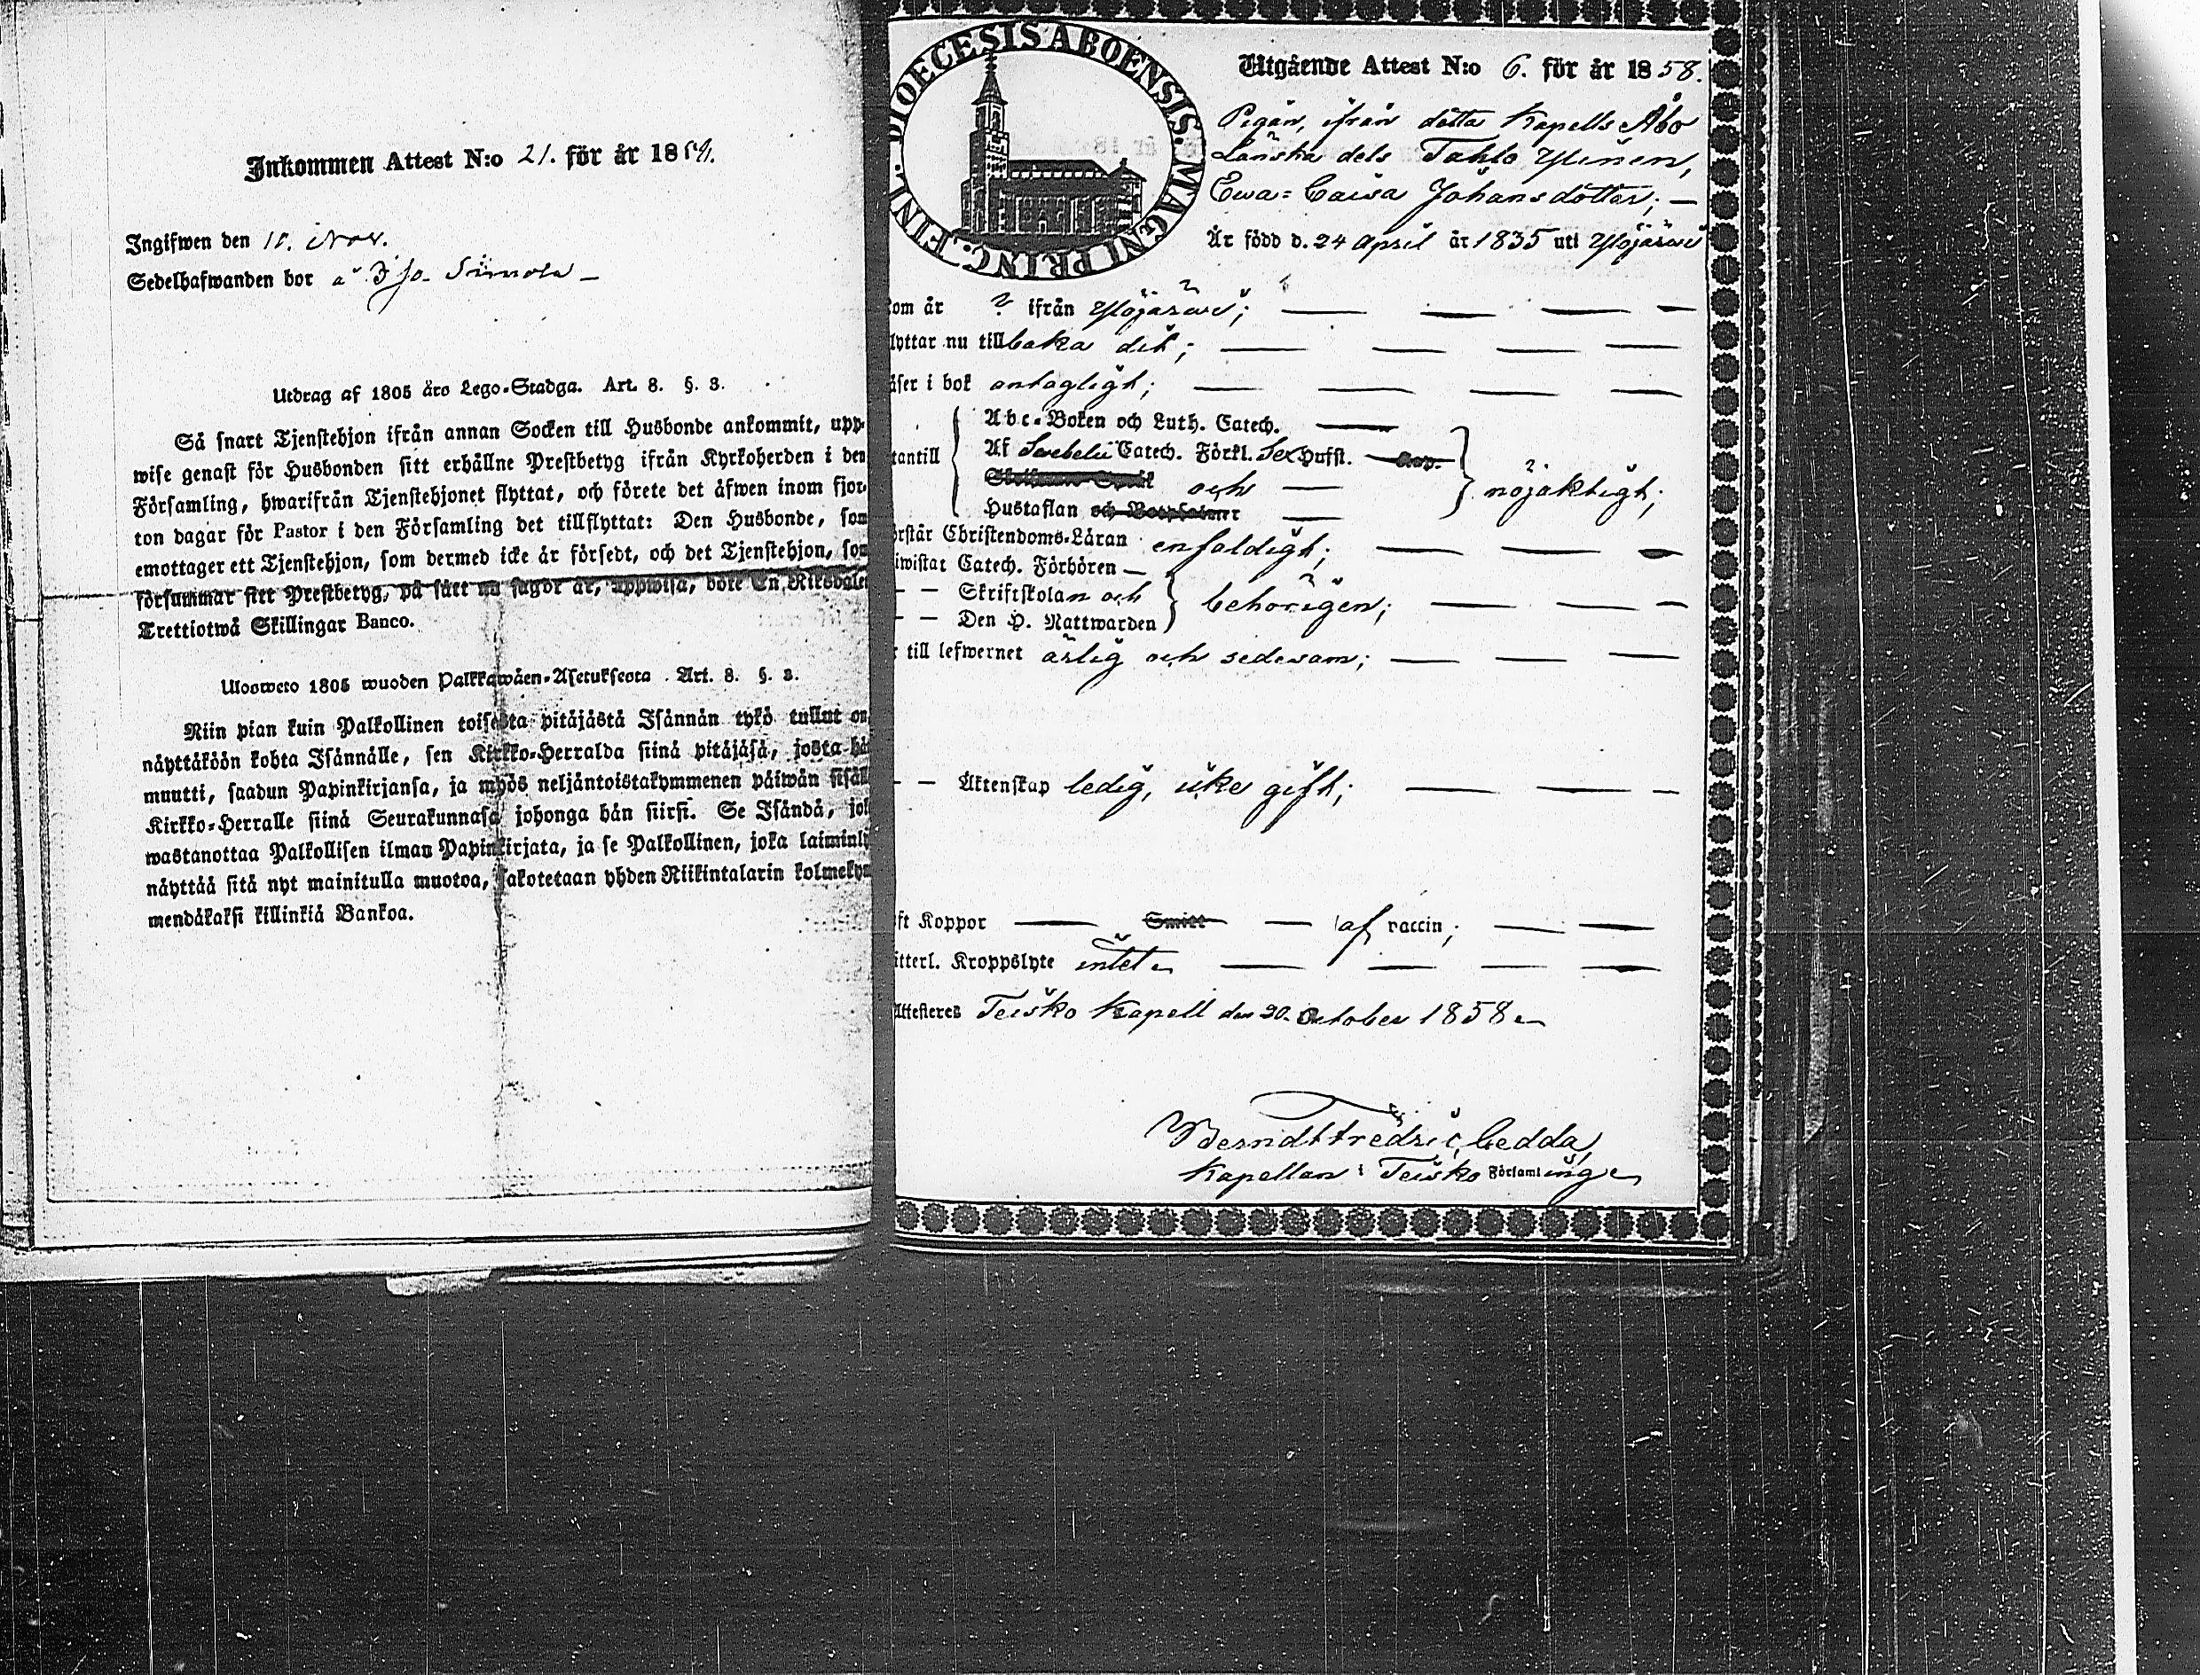 Inkommen Attest N:o 21. för år 1858.
Ingifwen den 10. Nov.
Sedelhafwanden bor å Iso-Simola –
Utdrag af 1805 års Lego-Stadga. Art. 8. §. 3.
Så snart Tjenstehjon ifrån annan Socken till Husbonde ankommit, upp-
wise genast för Husbonden sitt erhållne Prestbetyg ifrån Kyrkoherden i den
Församling, hwarifrån Tjenstehjonet flyttat, och förete det äfwen inom fjor-
ton dagar för Pastor i den Församling det tillflyttat: Den Husbonde, som
emottager ett Tjenstehjon, som dermed icke är försedt, och det Tjenstehjon, som
försummar sitt Prestbetyg, på sätt nu sagdt är, uppwisa, böte En Riksdaler
Trettiotwå Skillingar Banco.
Ulosweto 1805 wuoden Palkkawäen-Asetuksesta. Art. 8. §. 3.
Niin pian kuin Palkollinen toisesta pitäjästä Isännän tykö tullut on
näyttäköön kohta Isännälle, sen Kirkko-Herralda siinä pitäjäsä, josta hän
muutti, saadun Papinkirjansa, ja myös neljäntoistakymmenen päiwän sisäll
Kirkko-Herralle siinä Seurakunnasa johonga hän siirsi. Se Isändä, jok
wastanottaa Palkollisen ilman Papinkirjata, ja se Palkollinen, joka laiminly
näyttää sitä nyt mainitulla muotoa, sakotetaan yhden Riikintalarin kolmekym
mendäkaksi killinkiä Bankoa.
DIOECESIS ABOENSIS. MAGNI PRINC. FINL.
Utgående Attest N:o 6. för år 1858.
Pigan, ifrån detta Kapells Åbo
Länska dels Tahlo Ylinen,
Ewa=Caisa Johansdotter; —
Är född d. 24 April år 1835 uti Ylöjärwi
kom år ? ifrån Ylöjärwi; — — — —
lyttar nu tillbaka dit; — — — —
äser i bok antagligt; — — — —
Abc-Boken och Luth. Catech. —
tantill Af Swebelii Catech. Förkl. Sex Hufst. —
och — nöjaktigt;
Hustaflan och Botpsalmer —
örstår Christendoms-Läran enfaldigt; — — —
iwistat Catech. Förhören —
— — Skriftskolan och behörigen; — — —
— — Den H. Nattwarden
r till lefwernet ärlig och sedesam; — — —
— — Äktenskap ledig, icke gift; — — —
ft Koppor — Smitt — af vaccin; — —
itterl. Kroppslyte intet — — — —
Attesteres Teisko Kapell den 30. October 1858
Berndt Fredric Cedda,
Kapellan i Teisko Församling